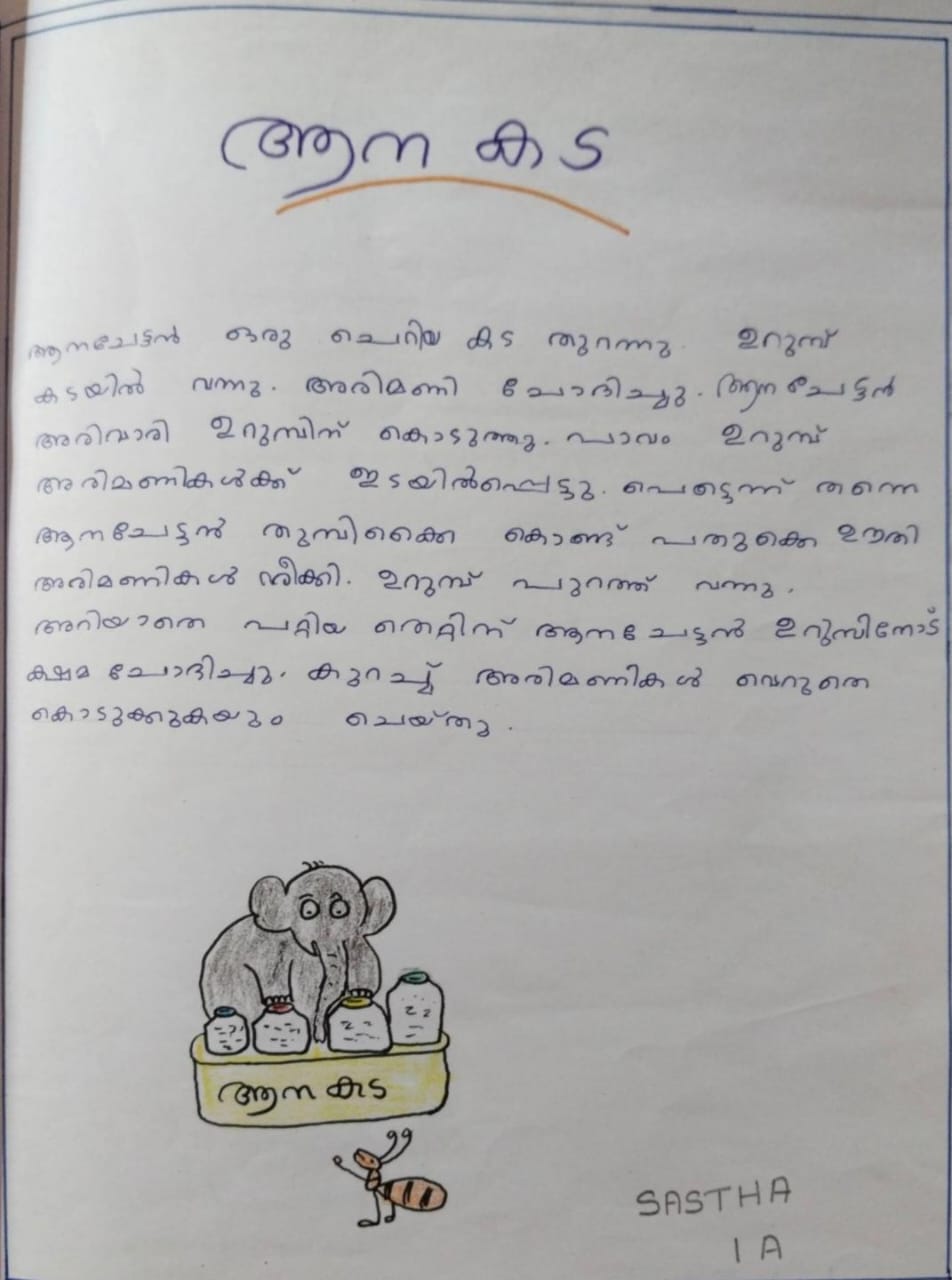 ആന കട
ആനചേട്ടൻ ഒരു ചെറിയ കട തുറന്നു. ഉറുമ്പ്
കടയിൽ വന്നു. അരിമണി ചോദിച്ചു. ആന ചേട്ടൻ
അരിവാരി ഉറുമ്പിന് കൊടുത്തു. പാവം ഉറുമ്പ്
അരിമണികൾക്ക് ഇടയിൽപ്പെട്ടു. പെട്ടെന്ന് തന്നെ
ആനചേട്ടൻ തുമ്പിക്കൈ കൊണ്ട് പതുക്കെ ഊതി
അരിമണികൾ നീക്കി. ഉറുമ്പ് പുറത്ത് വന്നു.
അറിയാതെ പറ്റിയ തെറ്റിന് ആനചേട്ടൻ ഉറുമ്പിനോട്
ക്ഷമ ചോദിച്ചു. കുറച്ച് അരിമണികൾ വെറുതെ
കൊടുക്കുകയും ചെയ്തു.
ആന കട
SASTHA
1 A